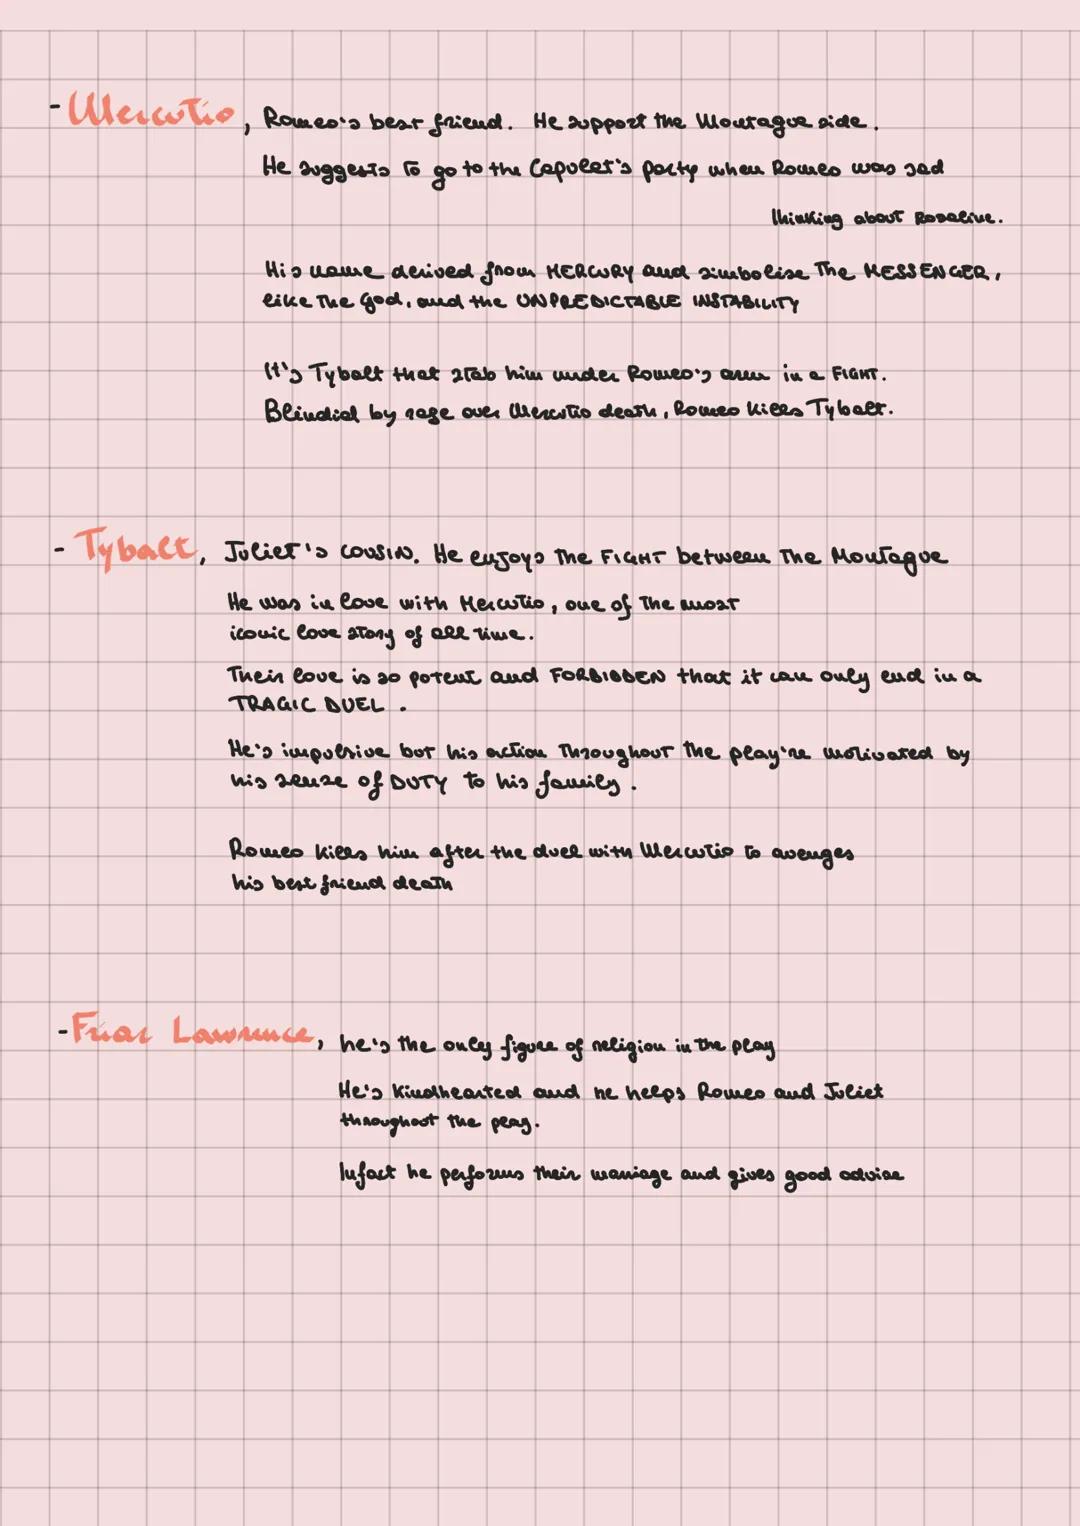 - Mercutio, Romeo's best friend. He support the Montague side.
He suggests to go to the Capulet's party when Romeo was sad
thinking about Rosaline.
His name derived from MERCURY and simbolise the MESSENGER,
like the god, and the UNPREDICTABLE INSTABILITY
It's Tybalt that stab him under Romeo's arm in a FIGHT.
Blindid by rage over Mercutio death, Romeo kills Tybalt.
- Tybalt, Juliet's COUSIN. He enjoys the FIGHT between the Montague
He was in love with Mercutio, one of the most
iconic love story of all time.
Their love is so potent and FORBIDDEN that it can only end in a
TRAGIC DUEL.
He's impulsive but his action throughout the play're motivated by
his sense of DUTY to his family.
Romeo kills him after the duel with Mercutio to avenges
his best friend death
- Friar Lawrence, he's the only figure of religion in the play
He's kindhearted and he helps Romeo and Juliet
throughout the play.
Infact he performs their marriage and gives good advise